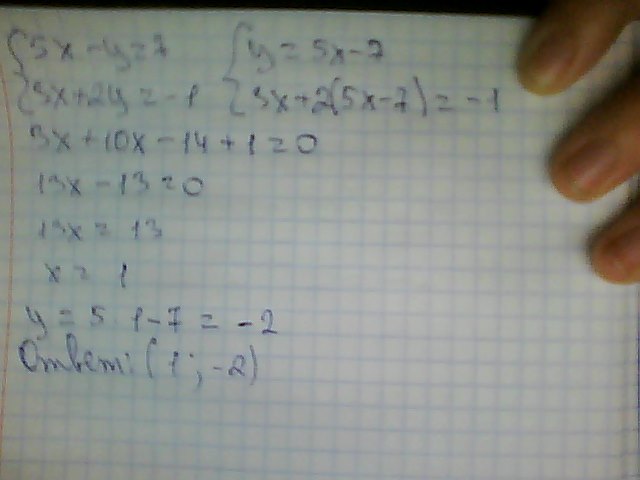 {5x - y = 7 {y = 5x - 7
{3x + 2y = -1 {3x + 2(5x - 7) = -1
3x + 10x - 14 + 1 = 0
13x - 13 = 0
13x = 13
x = 1
y = 5 · 1 - 7 = -2
Ответ: (1; -2)